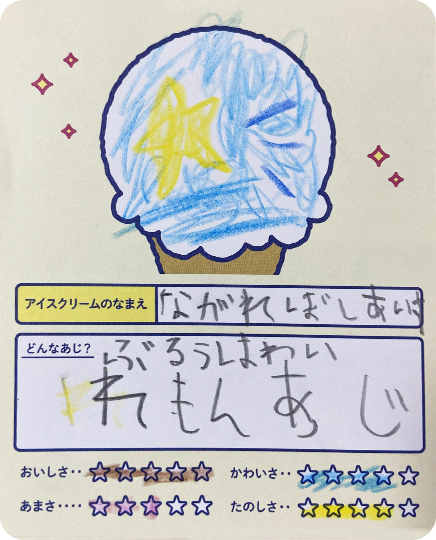 アイスクリームのなまえ
ながれぼしあいす
どんなあじ?
ぶるうはわい
れもんあじ
おいしさ‥ ☆☆☆☆☆
かわいさ‥ ☆☆☆☆☆
あまさ‥‥ ☆☆☆☆☆
たのしさ‥ ☆☆☆☆☆